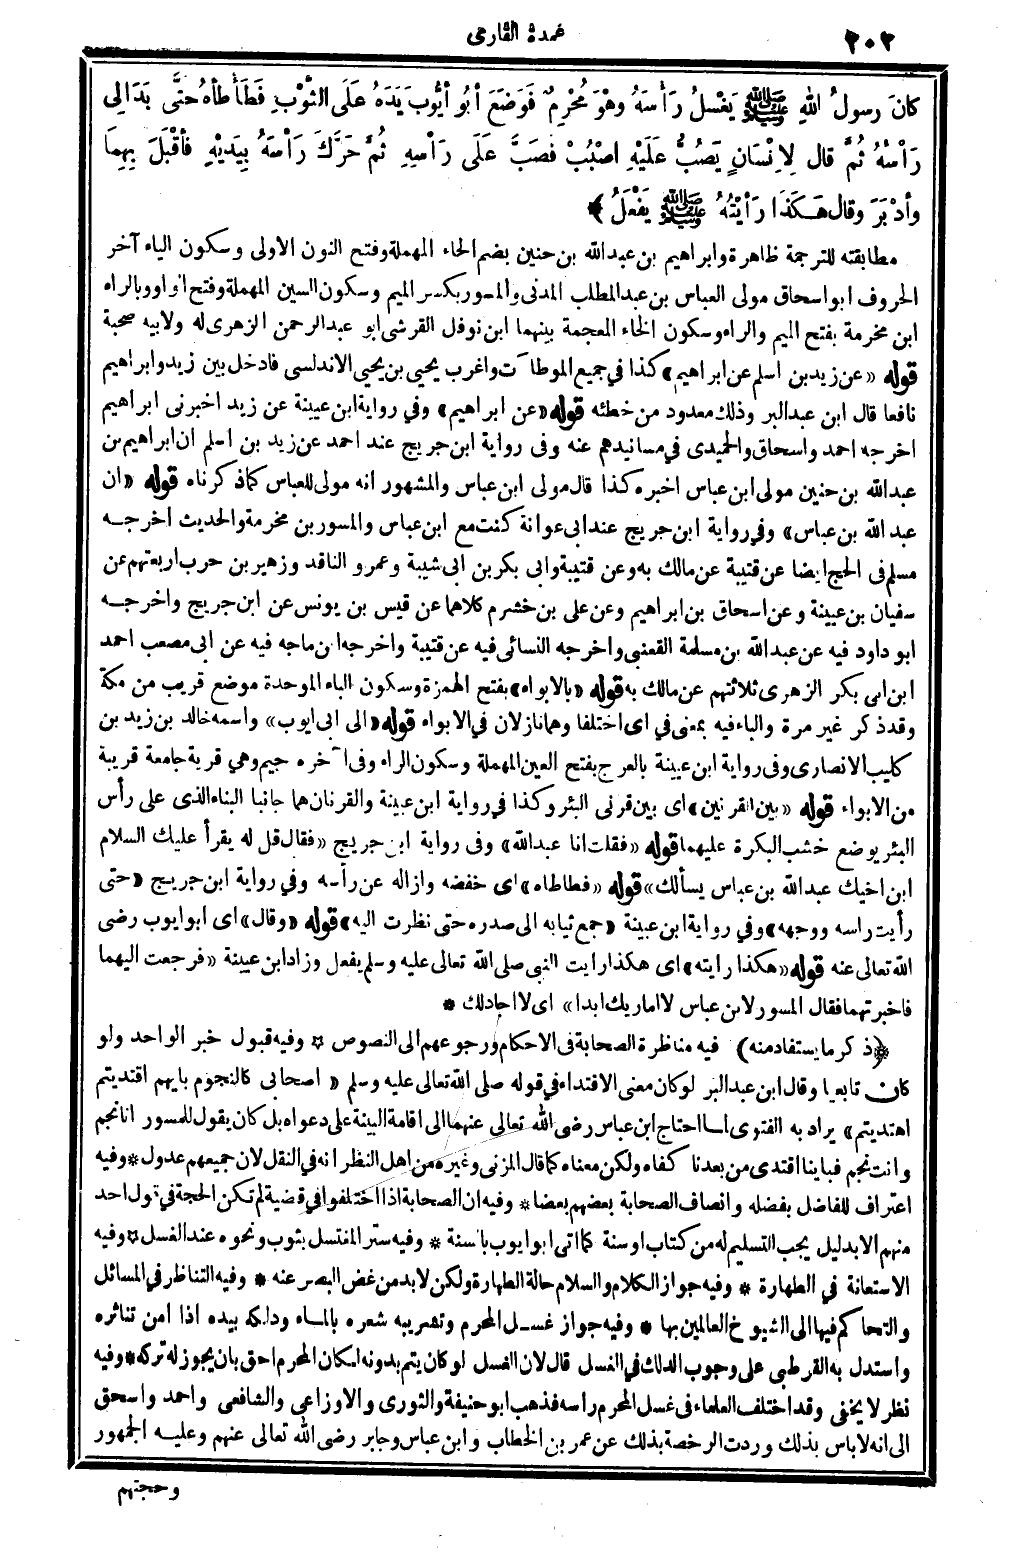 ٢٠٢
عمدة القارى
كانَ رسولُ اللهِ ﷺ يَغْسلُ رَأسَهُ وهْوَ مُحْرِمٌ فَوَضَعَ أبُو أيُّوبَ يَدَهُ عَلَى الثَّوْبِ فَطَأطأهُ حتَّى بَدَالِى
رَأْسُهُ ثُمَّ قال لِانْسَانٍ يَصُبُّ عَلَيْهِ اصْبُبْ فَصَبَّ عَلَى رَأسِهِ ثُمَّ حَرَّكَ رَأْسَهُ بِيَدَيْهِ فأقْبَلَ بِهِمَا
وأدْبَرَ وقال هَـكَذَا رَأيْتُهُ ﷺ يَفْعَلُ ﴾
مطابقته للترجمة ظاهرة وابراهيم بن عبدالله بن حنين بضم الحاء المهملة وفتح النون الاولى وسكون الياء آخر
الحروف ابو اسحاق مولى العباس بن عبد المطلب المدنى والمسور بكسر الميم وسكون السين المهملة وفتح الواو وبالراء
ابن مخرمة بفتح الميم والراء وسكون الخاء المعجمة بينهما ابن نوفل القرشى ابو عبدالرحمن الزهرى له ولابيه صحبة
قوله «عن زيد بن اسلم عن ابراهيم» كذا في جميع الموطآت واغرب يحيى بن يحيى الاندلسى فادخل بين زيد وابراهيم
نافعا قال ابن عبدالبر وذلك معدود من خطئه قوله «عن ابراهيم» وفي رواية ابن عيينة عن زيد اخبرنى ابراهيم
اخرجه احمد واسحاق والحميدى في مسانيدهم عنه وفى رواية ابن جريج عند احمد عن زيد بن اسلم ان ابراهيم بن
عبدالله بن حنين مولى ابن عباس اخبره كذا قال مولى ابن عباس والمشهور انه مولى للعباس كما ذكرناه قوله «ان
عبد الله بن عباس» وفي رواية ابن جريج عند ابى عوانة كنت مع ابن عباس والمسور بن مخرمة والحديث اخرجـه
مسلم فى الحج ايضا عن قتيبة عن مالك به وعن قتيبة وابى بكر بن ابى شيبة وعمرو الناقد وزهير بن حرب اربعتهم عن
سفيان بن عيينة وعن اسحاق بن ابراهيم وعن على بن خشرم كلاهما عن قيس بن يونس عن ابن جريج واخرجـه
ابو داود فيه عن عبدالله بن مسلمة القعنبى واخرجه النسائى فيه عن قتيبة واخرجه ابن ماجه فيه عن ابى مصعب احمد
ابن ابى بكر الزهرى ثلاثتهم عن مالك به قوله «بالابواء» بفتح الهمزة وسكون الباء الموحدة موضع قريب من مكة
وقد ذكر غير مرة والباء فيه بمعنى في اى اختلفا وهما نازلان في الابواء قوله «الى ابى ايوب» واسمه خالد بن زيد بن
كليب الانصارى وفى رواية ابن عيينة بالعرج بفتح العين المهملة وسكون الراء وفى آخره جيم وهي قرية جامعة قريبة
من الابواء قوله «بين القرنين» اى بين قرنى البئر وكذا في رواية ابن عيينة والقرنان هما جانبا البناء الذى على رأس
البئر يوضع خشب البكرة عليهما قوله «فقلت انا عبدالله» وفى رواية ابن جريج «فقال قل له يقرأ عليك السلام
ابن اخيك عبدالله بن عباس يسألك» قوله «فطاطاه» اى خفضه وازاله عن رأسه وفي رواية ابن جريج «حتى
رأيت راسه ووجهه» وفي رواية ابن عيينة «جمع ثيابه الى صدره حتى نظرت اليه» قوله «وقال» اى ابو ايوب رضى
الله تعالى عنه قوله «هكذا رايته» اى هكذا رايت النبي صلى الله تعالى عليه وسلم يفعل وزاد ابن عيينة «فرجعت اليهما
فاخبرتهما فقال المسور لابن عباس لا اماريك ابدا» اى لا اجادلك *
﴿ذكر ما يستفاد منه﴾ فيه مناظرة الصحابة فى الاحكام ورجوعهم الى النصوص * وفيه قبول خبر الواحد ولو
كان تابعيا وقال ابن عبدالبر لو كان معنى الاقتداء في قوله صلى الله تعالى عليه وسلم «اصحابى كالنجوم بايهم اقتديتم
اهتديتم» يراد به الفتوى لما احتاج ابن عباس رضى الله تعالى عنهما الى اقامة البينة على دعواه بل كان يقول للمسور انا نجم
وانت نجم فباينا اقتدى من بعدنا كفاه ولكن معناه كما قال المزنى وغيره من اهل النظر انه في النقل لان جميعهم عدول * وفيه
اعتراف للفاضل بفضله وانصاف الصحابة بعضهم بعضا * وفيه ان الصحابة اذا اختلفوا في قضية لم تكن الحجة في قول احد
منهم الا بدليل يجب التسليم له من كتاب او سنة كما اتى ابو ايوب بالسنة * وفيه ستر المغتسل بثوب ونحوه عند الغسل * وفيه
الاستعانة في الطهارة * وفيه جواز الكلام والسلام حالة الطهارة ولكن لا بد من غض البصر عنه * وفيه التناظر في المسائل
والتحاكم فيها الى الشيوخ العالمين بها * وفيه جواز غسـل المحرم وتشريبه شعره بالمـاء ودلكه بيده اذا امن تناثره
واستدل به القرطبي على وجوب الدلك في الغسل قال لان الغسل لو كان يتم بدونه لكان المحرم احق بان يجوز له تركه * وفيه
نظر لا يخفى وقد اختلف العلماء فى غسل المحرم راسه فذهب ابو حنيفة والثورى والاوزاعى والشافعى واحمد واسحق
الى انه لا باس بذلك وردت الرخصة بذلك عن عمر بن الخطاب وابن عباس وجابر رضى الله تعالى عنهم وعليـه الجمهور
وحجتهم